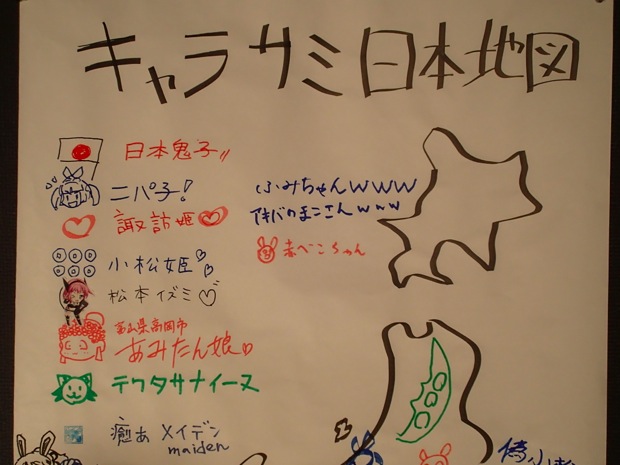 キャラサミ日本地図
日本鬼子
ニパ子!
ふみちゃんwww
諏訪姫
アキバのまこさんwww
赤べこちゃん
小松姫
松本イズミ
富山県高岡市
あみたん娘
テクタサナイース
癒あメイデン
maiden